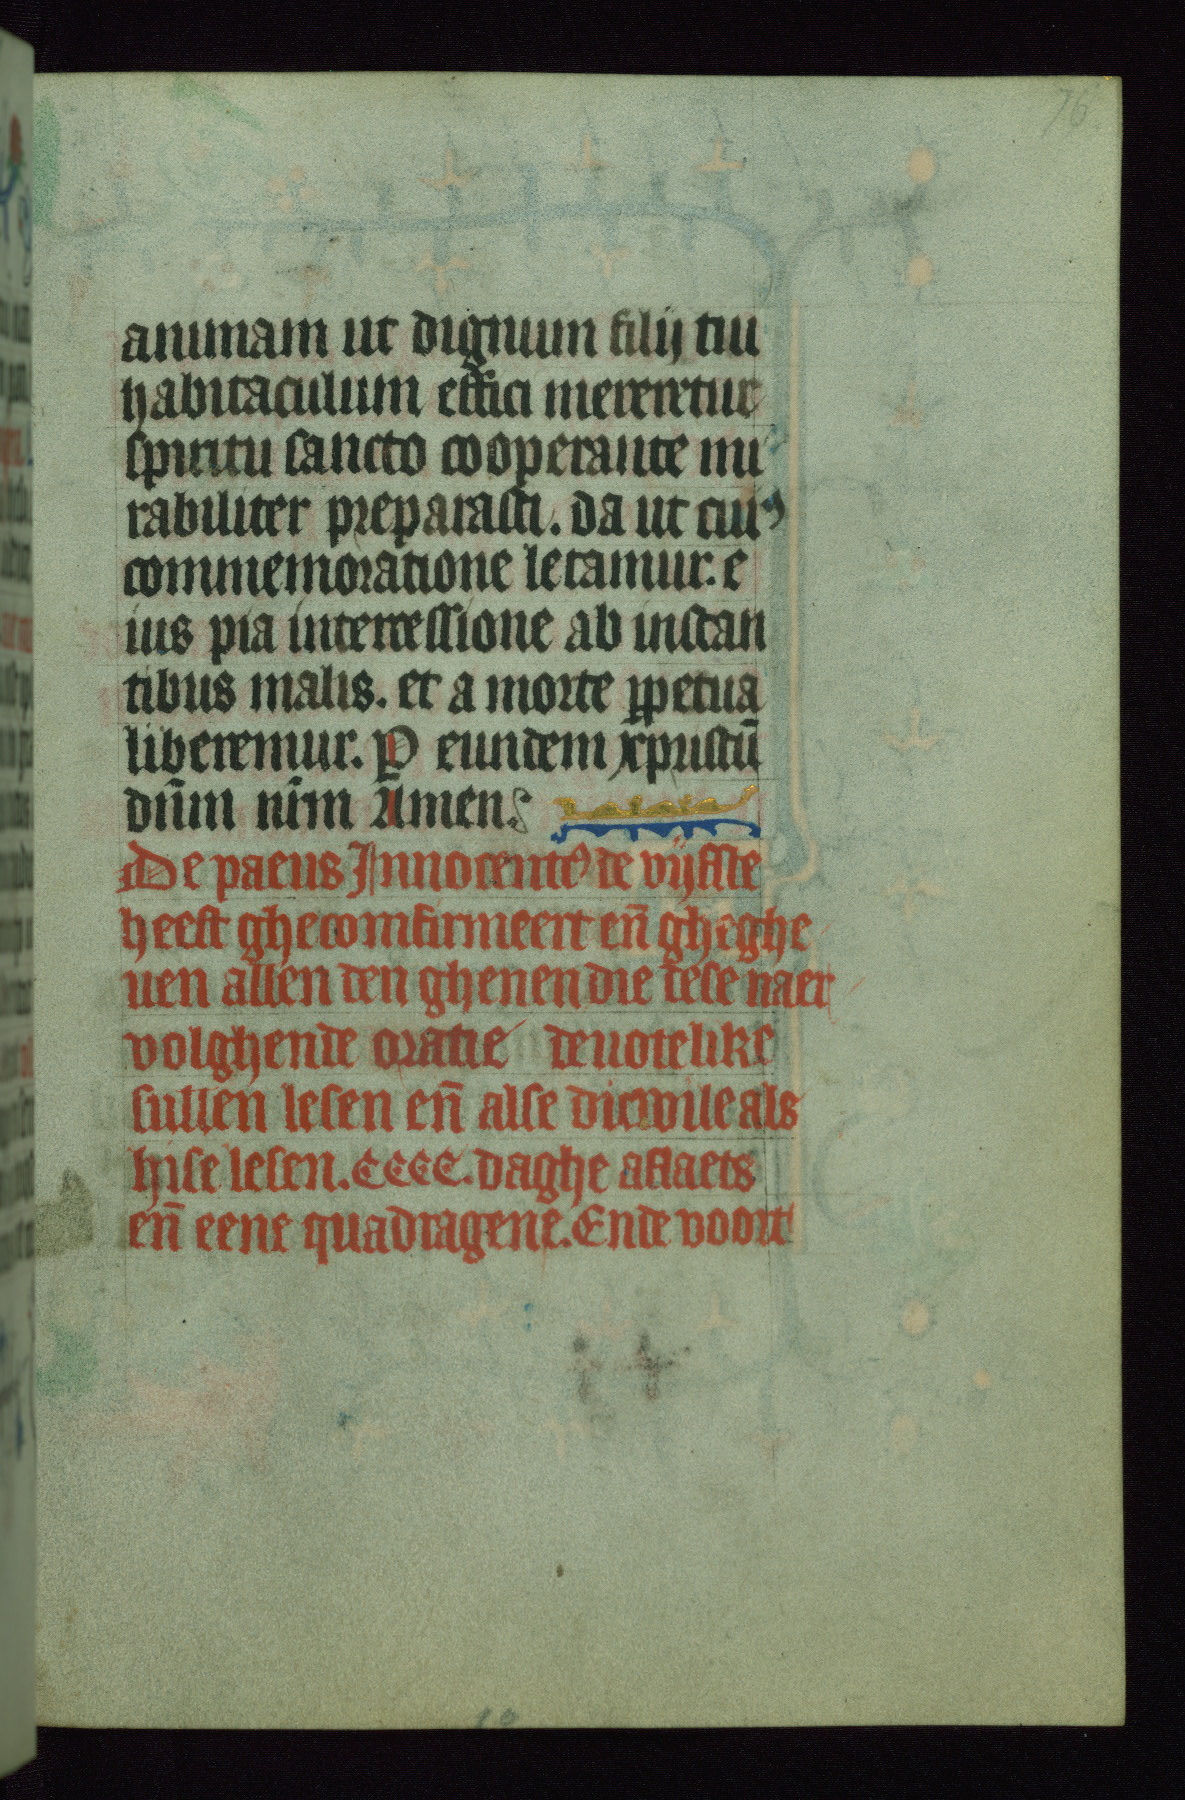 76
animam ut dignum filij tui
habitaculum effici mereretur
spiritu sancto cooperante mi
rabiliter preparasti. da ut cuiꝰ
commemoratione letamur. e
ius pia intercessione ab instan
tibus malis. et a morte ꝑpetua
liberemur. P eundem xpristū
dn̄m nr̄m Amen.
De paeus Innocentꝰ de vijfste
heeft gheconfirmeert en̄ gheghe
uen allen den ghenen die dese naer
volghende oratie deuotelike
sullen lesen en̄ alse dicwile als
hise lesen. CCCC. daghe aflaets
en̄ eene quadragene. Ende voort